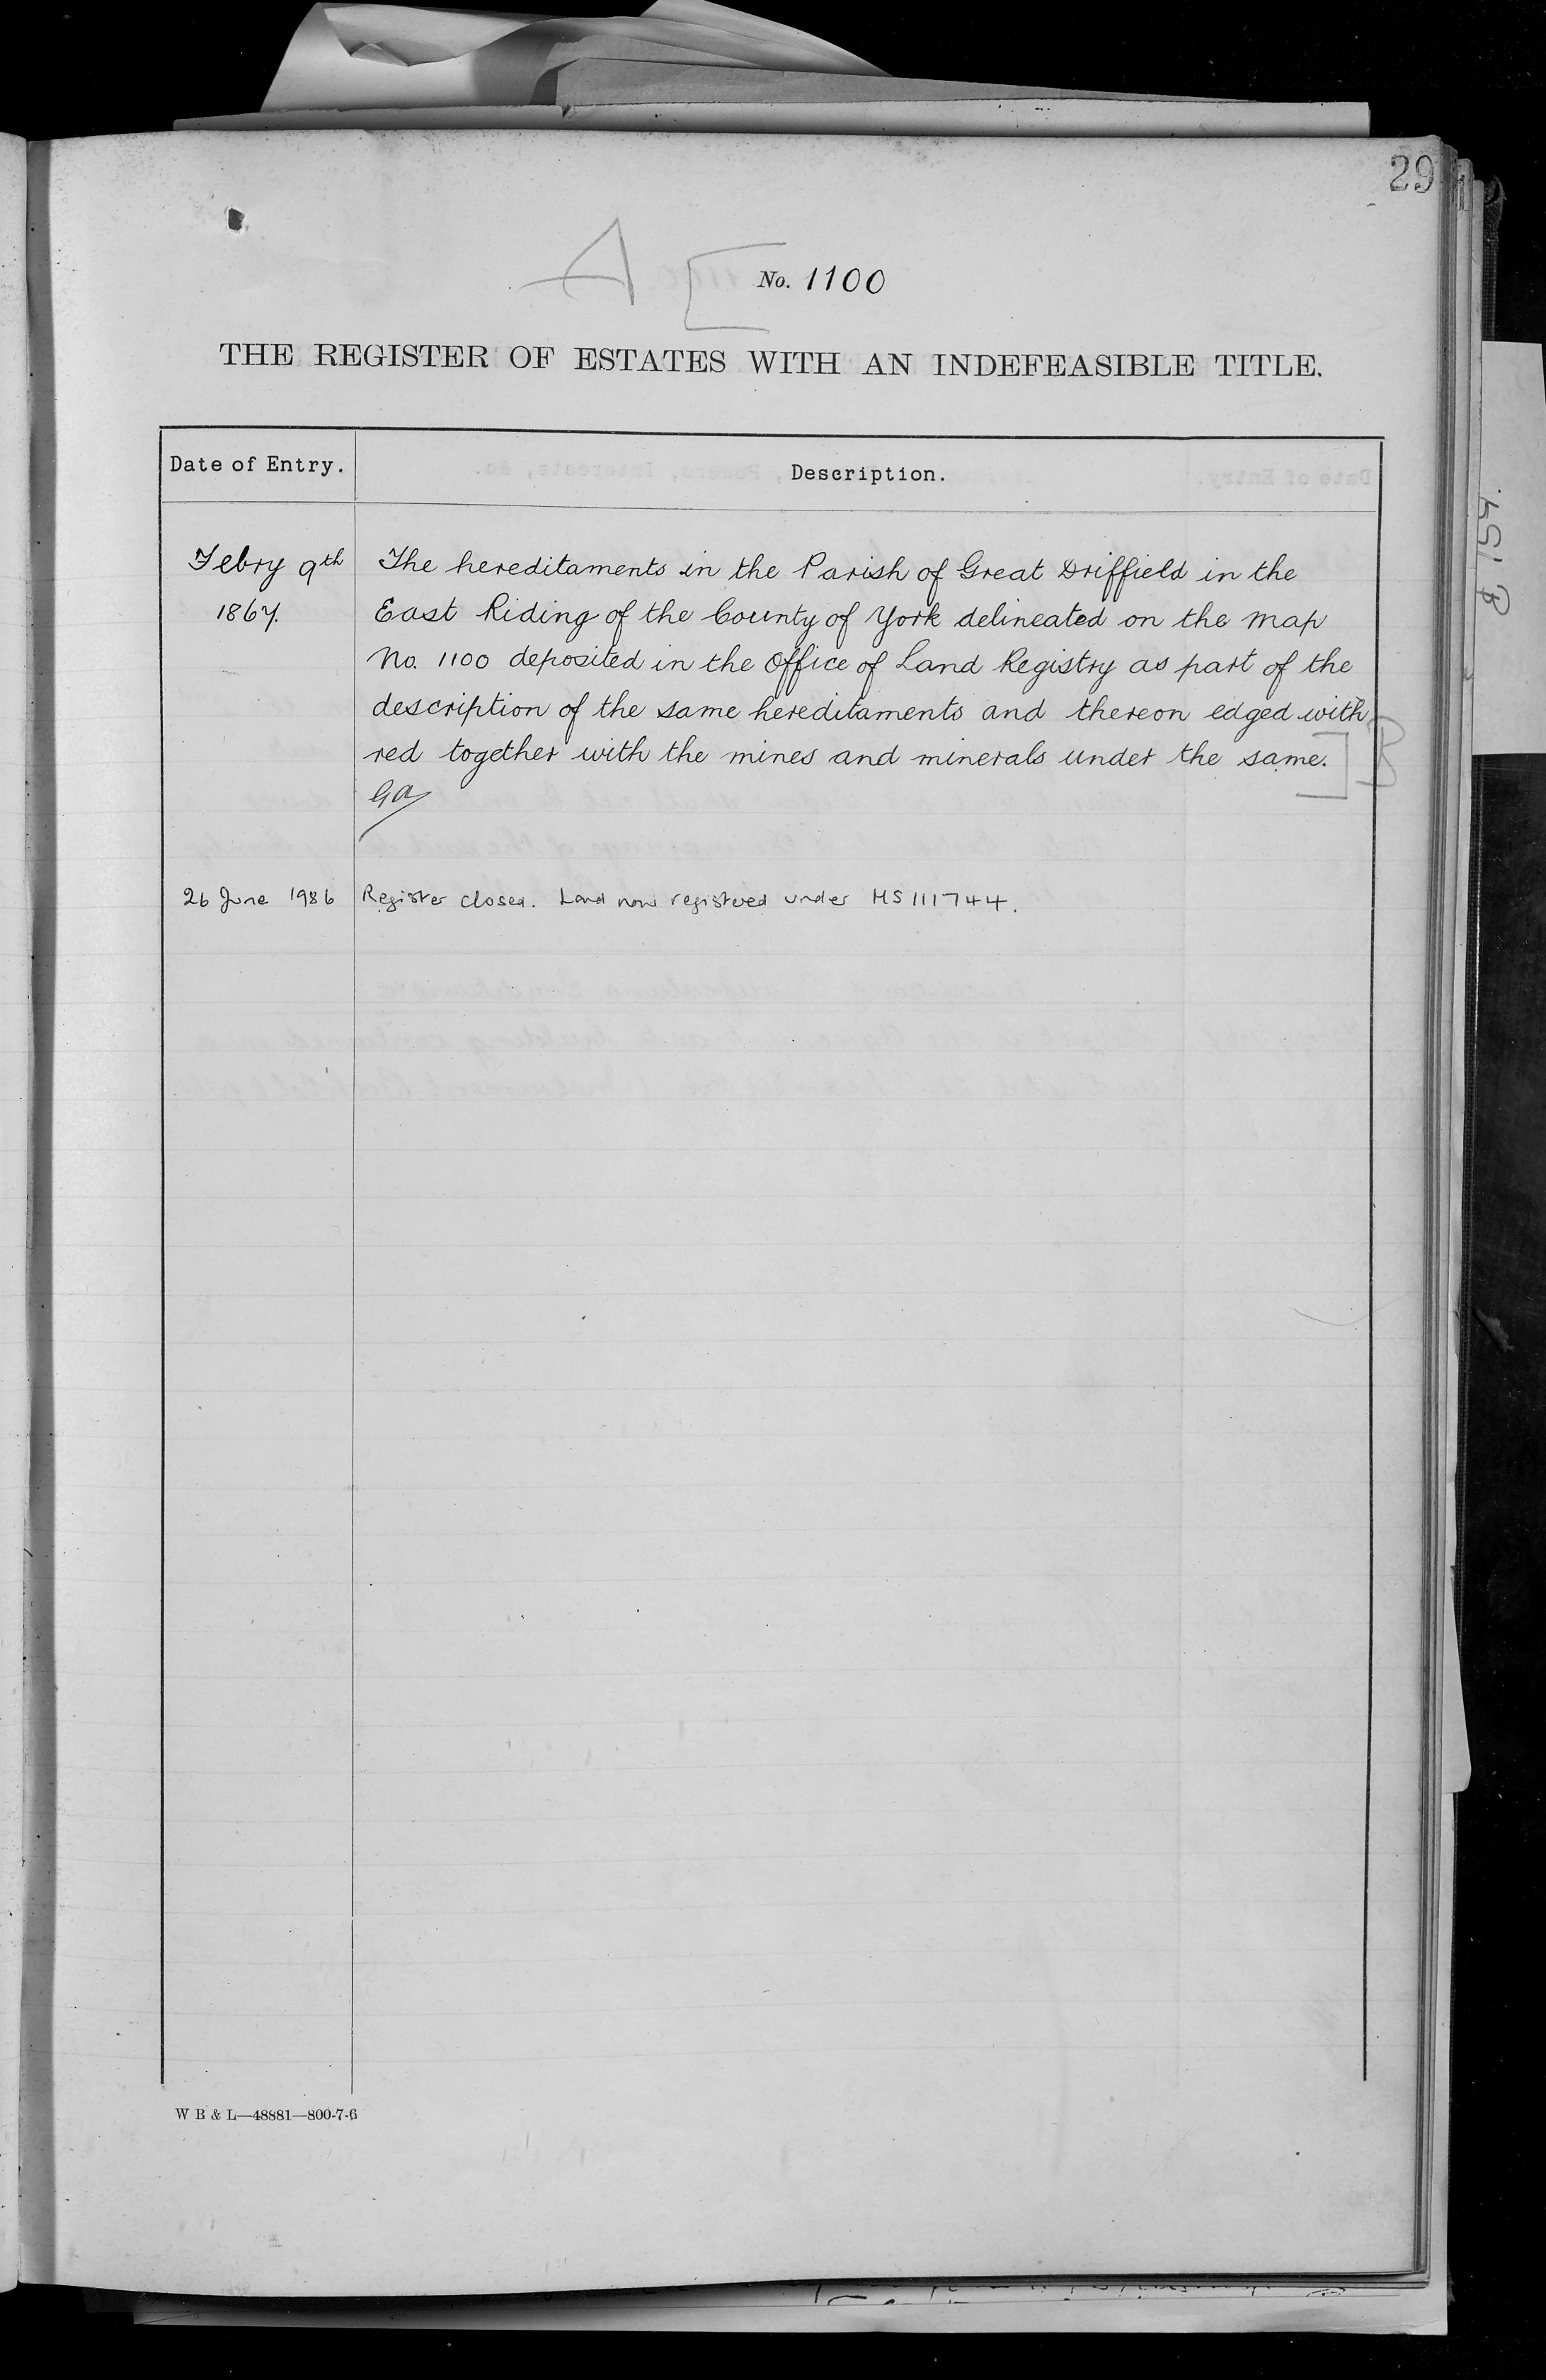 29
A [ No. 1100
THE REGISTER OF ESTATES WITH AN INDEFEASIBLE TITLE.
Date of Entry. Description.
Febry 9th The hereditaments in the Parish of Great Driffield in the
1867. East Riding of the County of York delineated on the map
No. 1100 deposited in the Office of Land Registry as part of the
description of the same hereditaments and thereon edged with
red together with the mines and minerals under the same. ]
GA
26 June 1986 Register closed. Land now registered under HS 111744.
W B & L—48881—800-7-6
P 159.